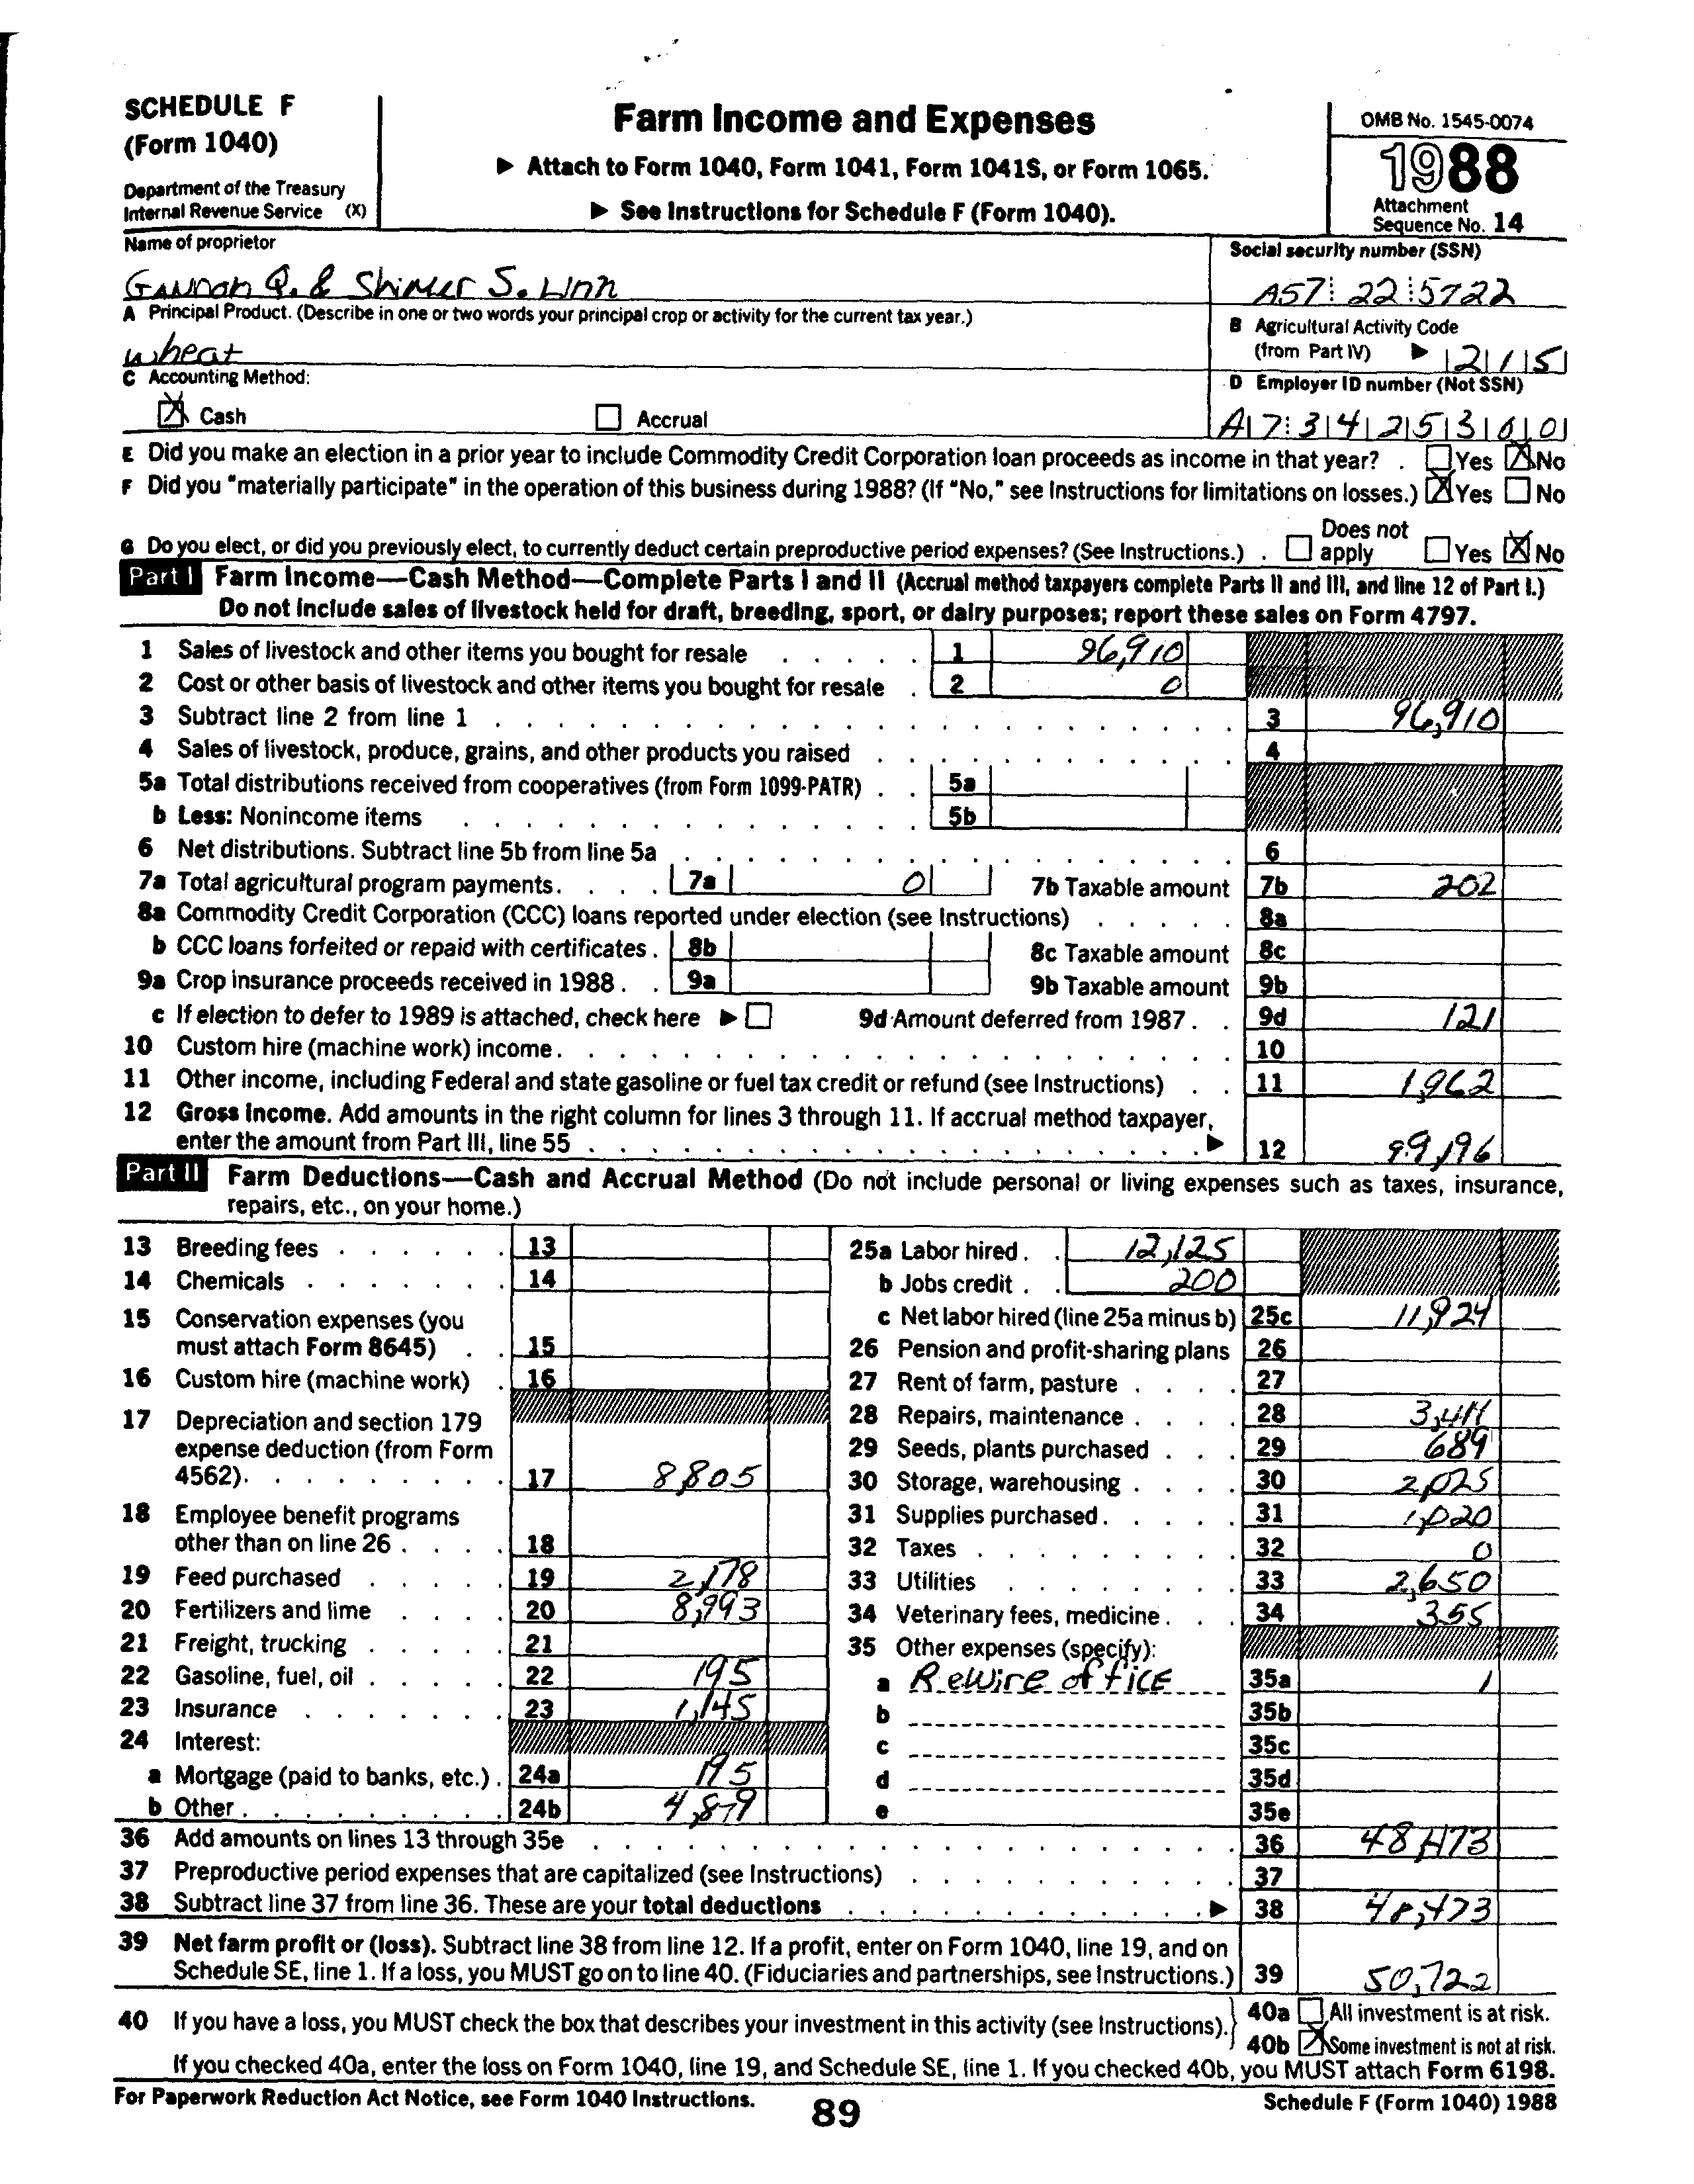 SCHEDULE F
(Form 1040)
Department of the Treasury
Internal Revenue Service (X)
Farm Income and Expenses
▶ Attach to Form 1040, Form 1041, Form 1041S, or Form 1065.
▶ See Instructions for Schedule F (Form 1040).
OMB No. 1545-0074
1988
Attachment
Sequence No. 14
Name of proprietor
Q. & S. Linn
Social security number (SSN)
A57 22 5722
A Principal Product. (Describe in one or two words your principal crop or activity for the current tax year.)
wheat
B Agricultural Activity Code
(from Part IV) ▶ 2 1 5
C Accounting Method:
Cash Accrual
D Employer ID number (Not SSN)
A 7 3 4 2 5 3 0 0
E Did you make an election in a prior year to include Commodity Credit Corporation loan proceeds as income in that year? . Yes No
F Did you "materially participate" in the operation of this business during 1988? (If "No," see Instructions for limitations on losses.) Yes No
G Do you elect, or did you previously elect, to currently deduct certain preproductive period expenses? (See Instructions.) . Does not apply Yes No
Part I Farm Income—Cash Method—Complete Parts I and II (Accrual method taxpayers complete Parts II and III, and line 12 of Part I.)
Do not include sales of livestock held for draft, breeding, sport, or dairy purposes; report these sales on Form 4797.
1 Sales of livestock and other items you bought for resale 1 96,910
2 Cost or other basis of livestock and other items you bought for resale 2 0
3 Subtract line 2 from line 1 3 96,910
4 Sales of livestock, produce, grains, and other products you raised 4
5a Total distributions received from cooperatives (from Form 1099-PATR) 5a
b Less: Nonincome items 5b
6 Net distributions. Subtract line 5b from line 5a 6
7a Total agricultural program payments. 7a 0 7b Taxable amount 7b 202
8a Commodity Credit Corporation (CCC) loans reported under election (see Instructions) 8a
b CCC loans forfeited or repaid with certificates . 8b 8c Taxable amount 8c
9a Crop insurance proceeds received in 1988 . 9a 9b Taxable amount 9b
c If election to defer to 1989 is attached, check here ▶ 9d Amount deferred from 1987 . 9d 121
10 Custom hire (machine work) income. 10
11 Other income, including Federal and state gasoline or fuel tax credit or refund (see Instructions) 11 1,962
12 Gross income. Add amounts in the right column for lines 3 through 11. If accrual method taxpayer,
enter the amount from Part III, line 55 ▶ 12 99,196
Part II Farm Deductions—Cash and Accrual Method (Do not include personal or living expenses such as taxes, insurance,
repairs, etc., on your home.)
13 Breeding fees 13
14 Chemicals 14
15 Conservation expenses (you
must attach Form 8645) 15
16 Custom hire (machine work) 16
17 Depreciation and section 179
expense deduction (from Form
4562). 17 8,805
18 Employee benefit programs
other than on line 26 . 18
19 Feed purchased 19 2,178
20 Fertilizers and lime 20 8,993
21 Freight, trucking 21
22 Gasoline, fuel, oil 22 195
23 Insurance 23 1,145
24 Interest:
a Mortgage (paid to banks, etc.) . 24a 195
b Other . 24b
25a Labor hired . 12,125
b Jobs credit . 200
c Net labor hired (line 25a minus b) 25c 11,924
26 Pension and profit-sharing plans 26
27 Rent of farm, pasture 27
28 Repairs, maintenance 28
29 Seeds, plants purchased 29 689
30 Storage, warehousing 30 2,025
31 Supplies purchased . 31 1,020
32 Taxes 32 0
33 Utilities 33 2,650
34 Veterinary fees, medicine . 34 355
35 Other expenses (specify):
a Rewire office 35a 1
b 35b
c 35c
d 35d
e 35e
36 Add amounts on lines 13 through 35e 36 48,473
37 Preproductive period expenses that are capitalized (see Instructions) 37
38 Subtract line 37 from line 36. These are your total deductions ▶ 38 48,473
39 Net farm profit or (loss). Subtract line 38 from line 12. If a profit, enter on Form 1040, line 19, and on
Schedule SE, line 1. If a loss, you MUST go on to line 40. (Fiduciaries and partnerships, see Instructions.) 39 50,722
40 If you have a loss, you MUST check the box that describes your investment in this activity (see Instructions).
40a All investment is at risk.
40b Some investment is not at risk.
If you checked 40a, enter the loss on Form 1040, line 19, and Schedule SE, line 1. If you checked 40b, you MUST attach Form 6198.
For Paperwork Reduction Act Notice, see Form 1040 Instructions.
89
Schedule F (Form 1040) 1988